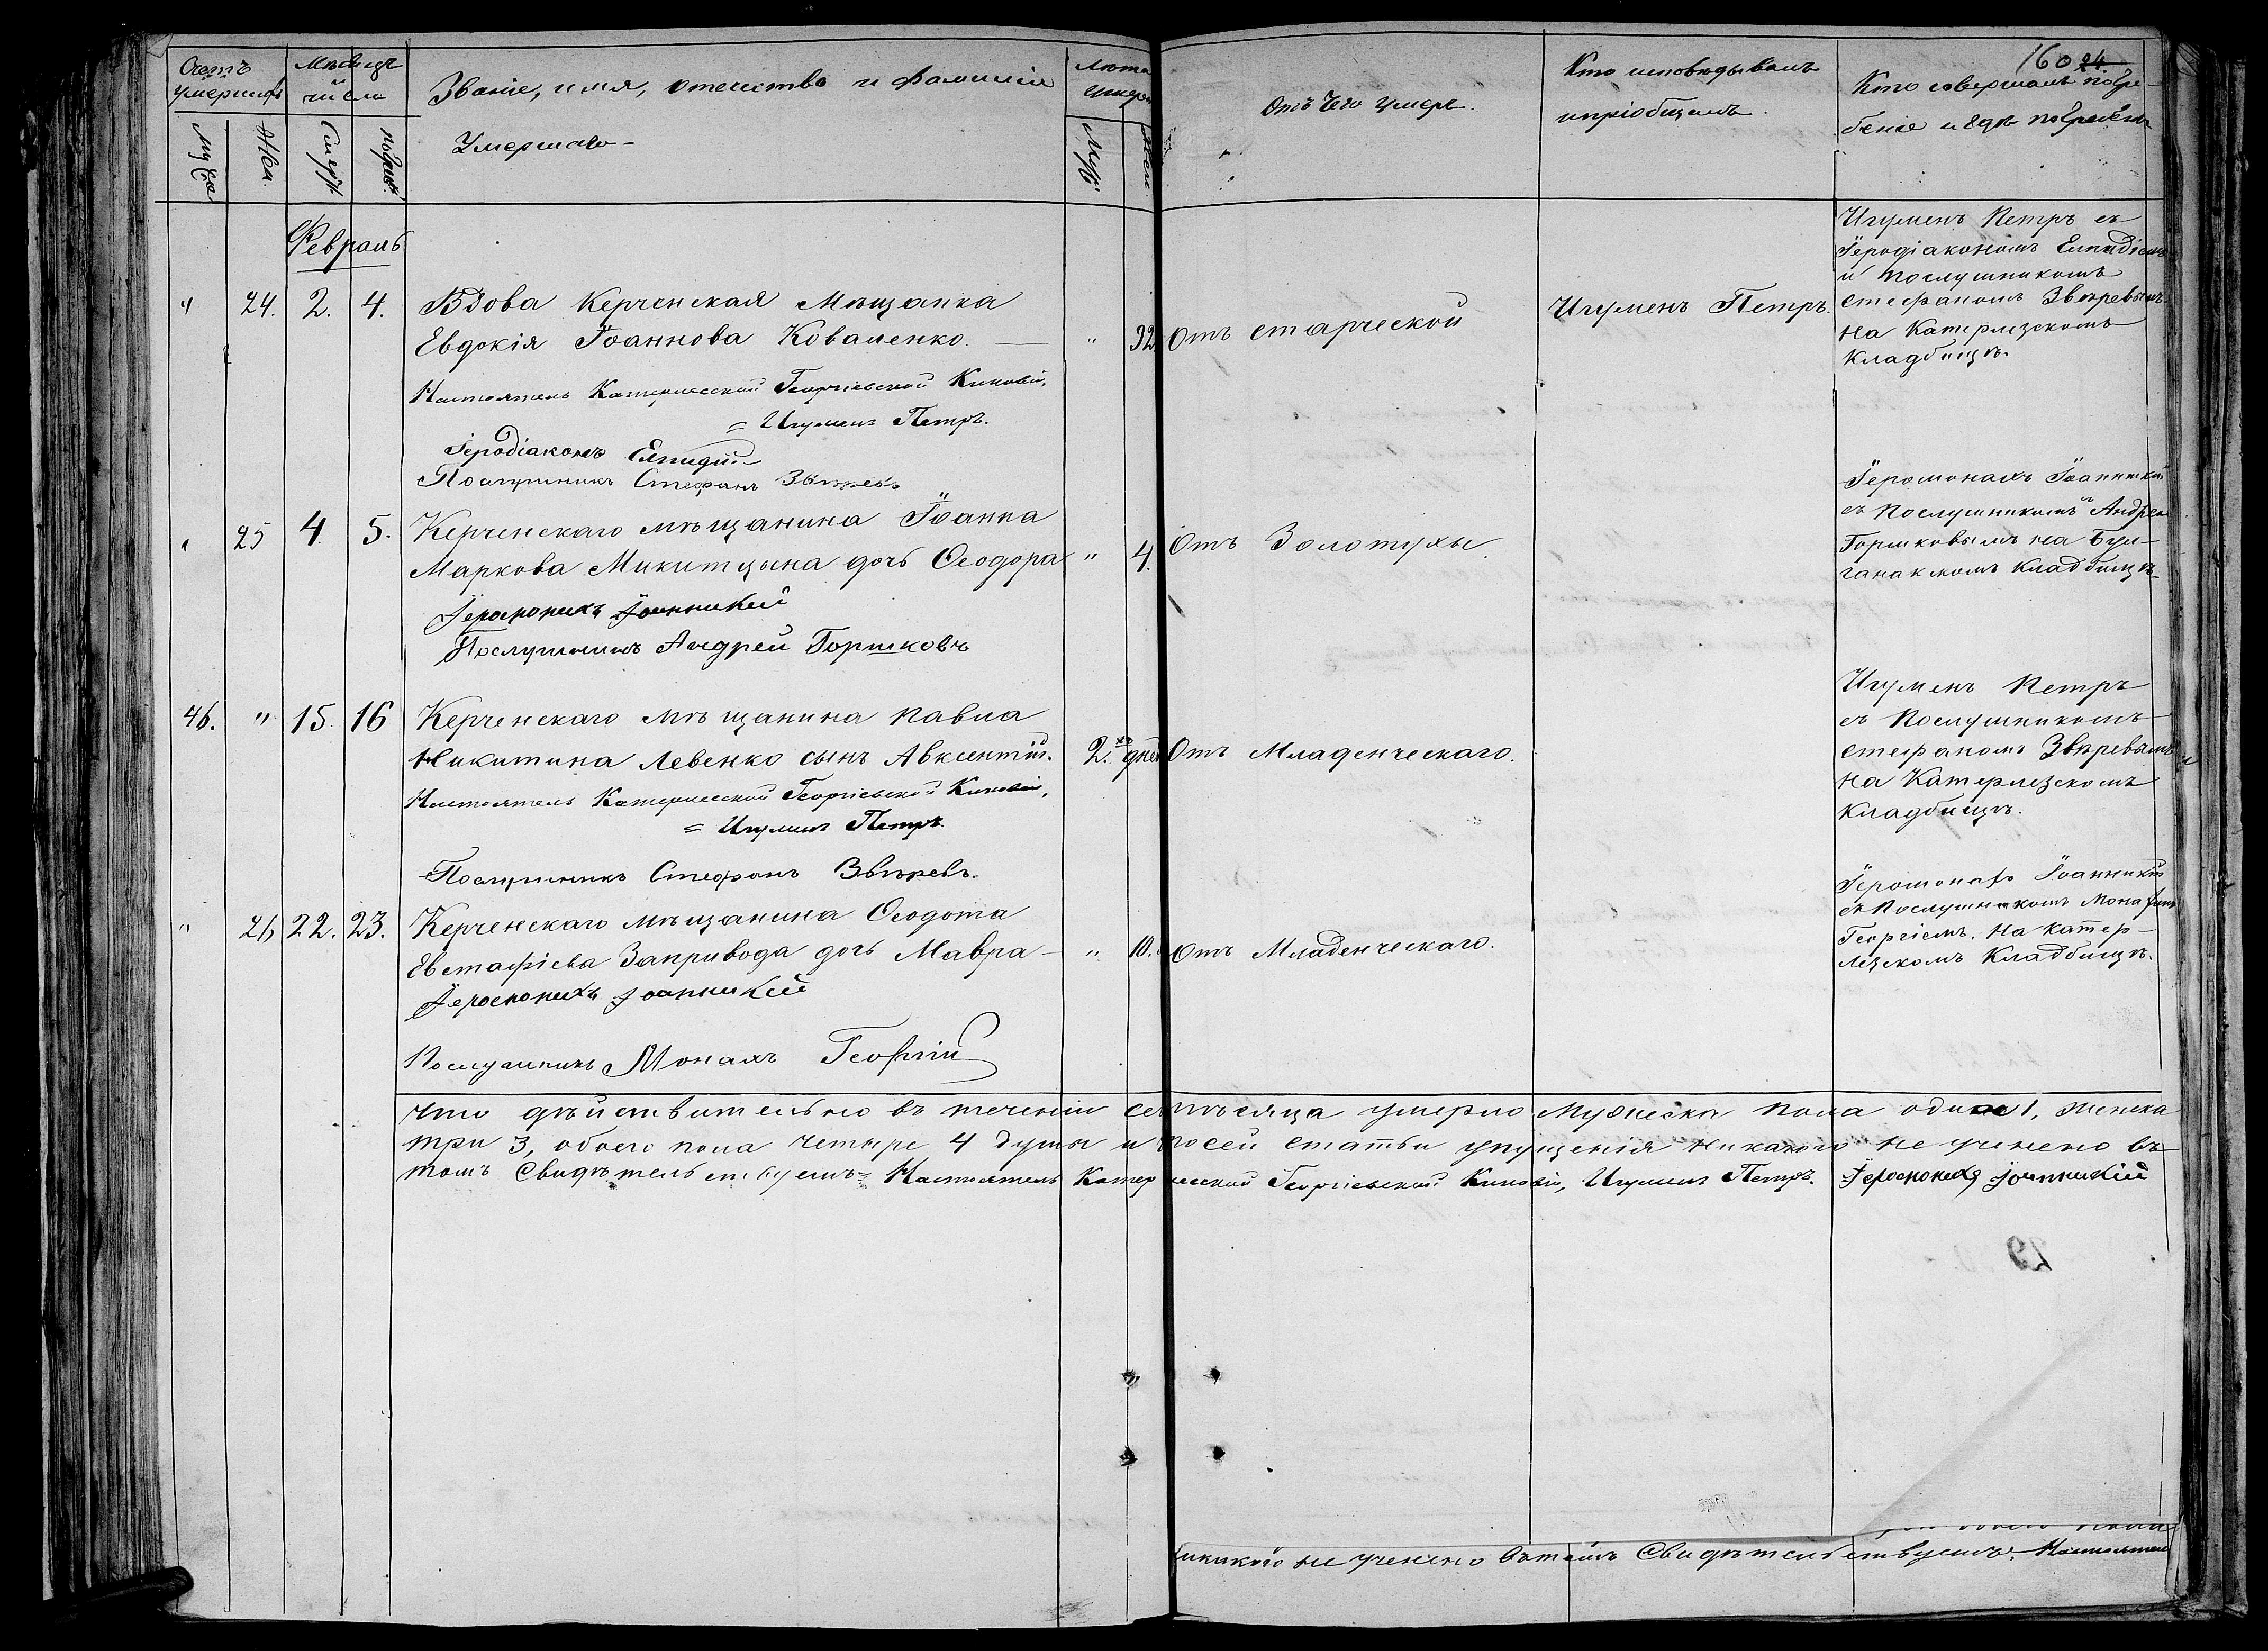 160 24
Счетъ умершихъ
Мѣсяцъ и число
Званіе, имя, отечество и фамилія
Умершаго
Лѣта умерш
Отъ чего умеръ.
Кто исповѣдывалъ
и пріобщалъ.
Кто совершалъ погре-
беніе и гдѣ погребенъ
Муж
Жен.
Смерт.
погреб.
Муж
Жен
Февраль
" 24. 2. 4. Вдова Керченская Мѣщанка
Евдокія Іоаннова Коваленко. " 92 Отъ старческой
Игуменъ Петръ.
Игуменъ Петръ съ
Іеродіакономъ Елпидіемъ
и послушникомъ
Стефаномъ Звѣревымъ
на Катерлезскомъ
Кладбищѣ.
Настоятель Катерлесской Георгіевской Киновіи,
= Игуменъ Петръ.
Іеродіаконъ Елпидій
Послушникъ Стефанъ Звѣревъ
" 25 4. 5. Керченскаго мѣщанина Іоанна
Маркова Микитцына дочь Ѳеодора " 4. Отъ Золотухи.
Іеромонахъ Іоанникій
съ Послушникомъ Андрее
Горшковымъ на Бул-
ганакскомъ Кладбищѣ
Іеромонахъ Іоанникій
Послушникъ Андрей Горшковъ
46. " 15. 16 Керченскаго мѣщанина Павла
Никитина Левенко сынъ Авксентій. 2.хъ дней Отъ Младенческаго.
Игуменъ Петръ
съ Послушникомъ
Стефаномъ Звѣревымъ
на Катерлезскомъ
Кладбищѣ.
Настоятель Катерлесской Георгіевской Киновіи,
= Игуменъ Петръ.
Послушникъ Стефанъ Звѣревъ.
" 26 22. 23. Керченскаго мѣщанина Ѳеодота
Евстафіева Запривода дочь Мавра " 10. Отъ Младенческаго.
Іеромонахъ Іоанникій
съ Послушникомъ Монахомъ
Георгіемъ. На Катер-
лезскомъ Кладбищѣ.
Іеромонахъ Іоанникій
Послушникъ Монахъ Георгій
Что дѣйствительно въ теченіи сего мѣсяца умерло Мужеска пола одинъ 1, женска
три 3, обоего пола четыре 4 души и по сей статьи упущенія никакого не учинено въ
томъ Свидѣтельствуемъ: Настоятель Катерлесской Георгіевской Киновіи, Игуменъ Петръ. Іеромонахъ Іоанникій
29
никакого не учинено въ томъ Свидѣтельствуемъ: Настоятель